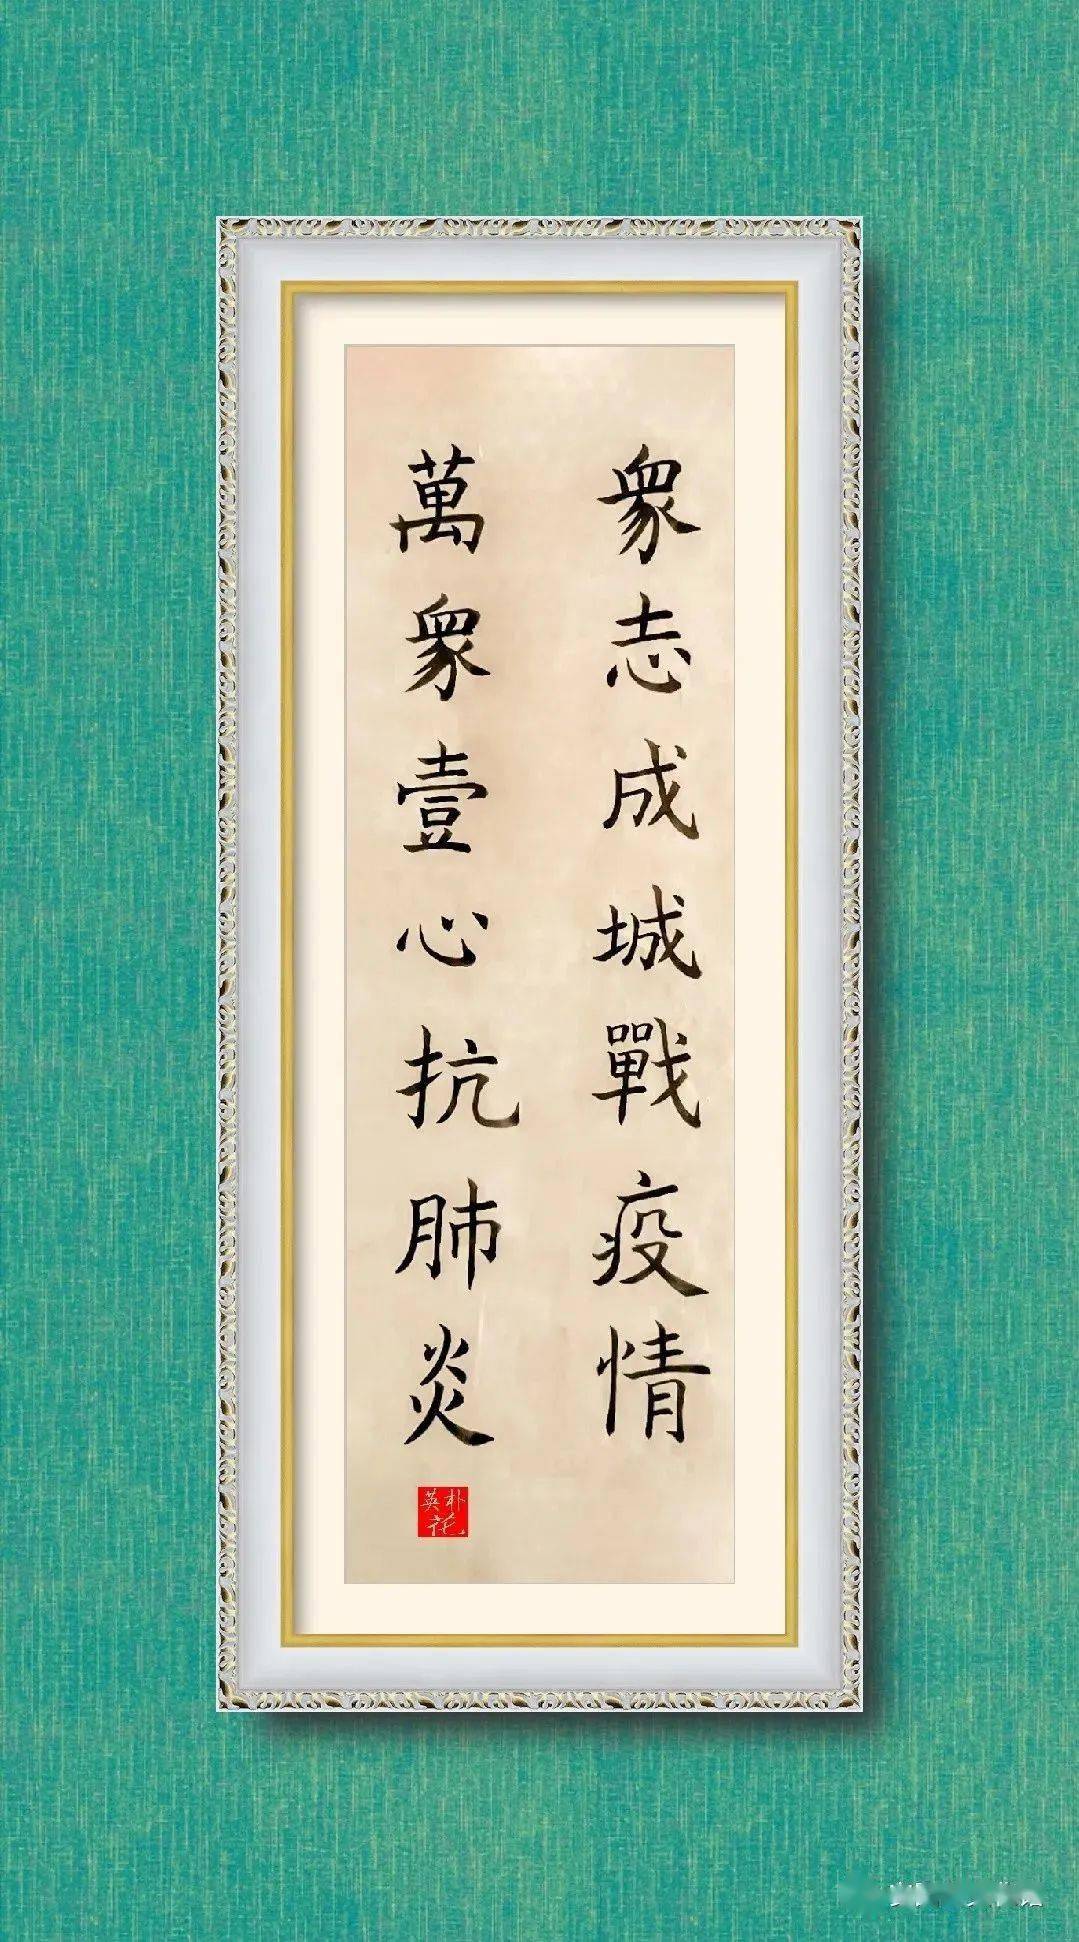 眾志成城戰疫情
萬眾壹心抗肺炎
朴英花